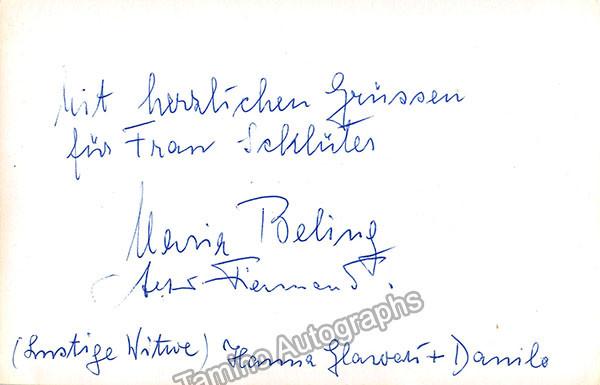 Mit herzlichen Grüssen
für Frau Schlüter
Maria Beling
(Lustige Witwe) Hanna Glawari + Danilo
Tamino Autographs